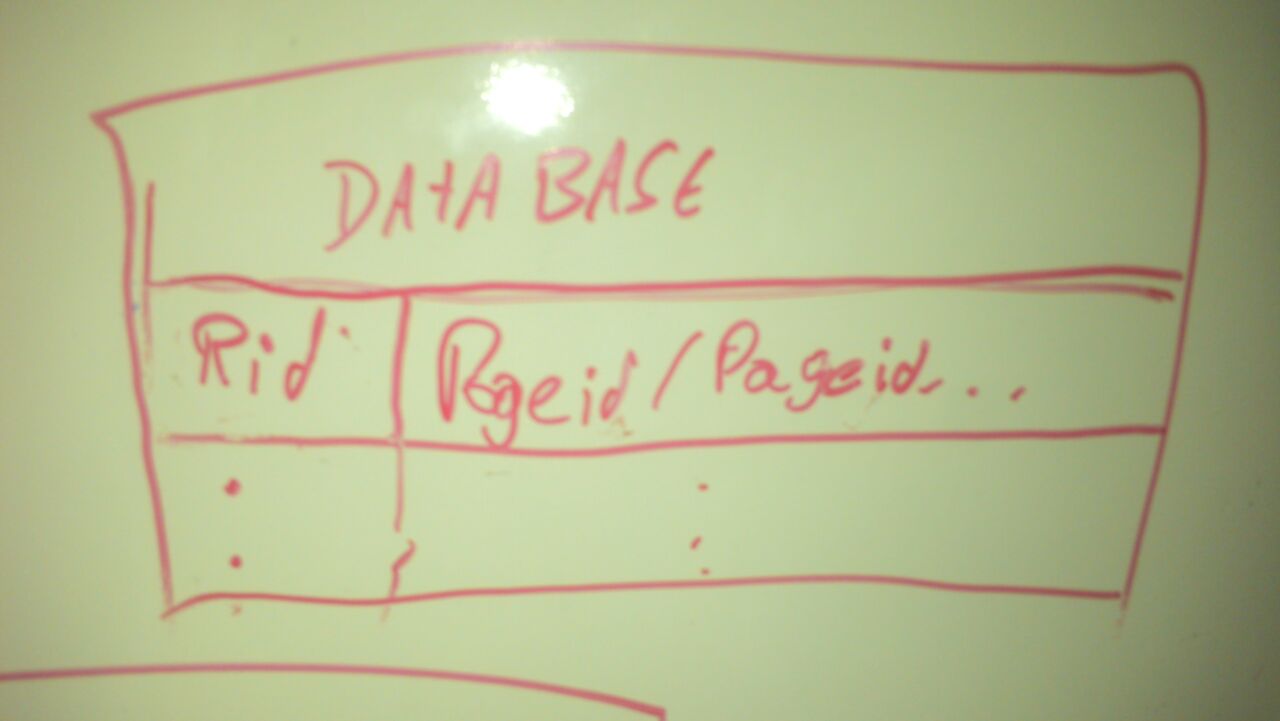 DATABASE
Rid Pageid/Pageid...